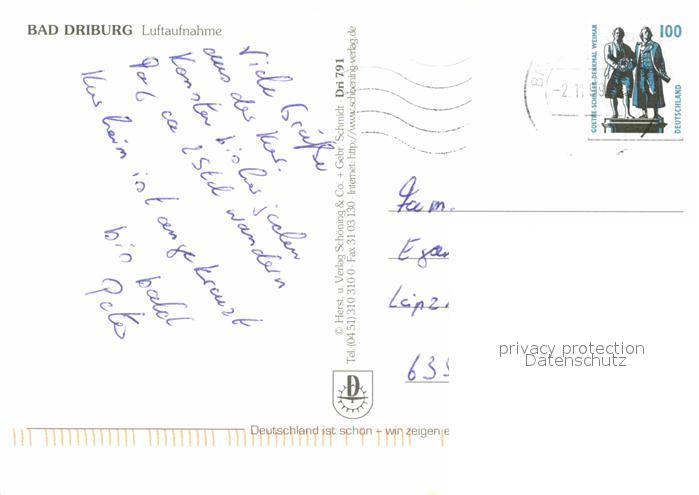 BAD DRIBURG Luftaufnahme
Viele Grüße
aus der Kur.
Konnten bisher jeden
Tag ca 2 Std wandern
Kurheim ist angekreuzt
bis bald
Peter
© Herst. u. Verlag Schöning & Co. + Gebr. Schmidt · Dri 791
Tel. (04 51) 310 310 0 · Fax 31 03 130 · Internet: http://www.schoening-verlag.de
GOETHE-SCHILLER-DENKMAL WEIMAR
100
DEUTSCHLAND
-2.11
Fam.
Leipz
635
privacy protection
Datenschutz
Deutschland ist schön – wir zeigen e